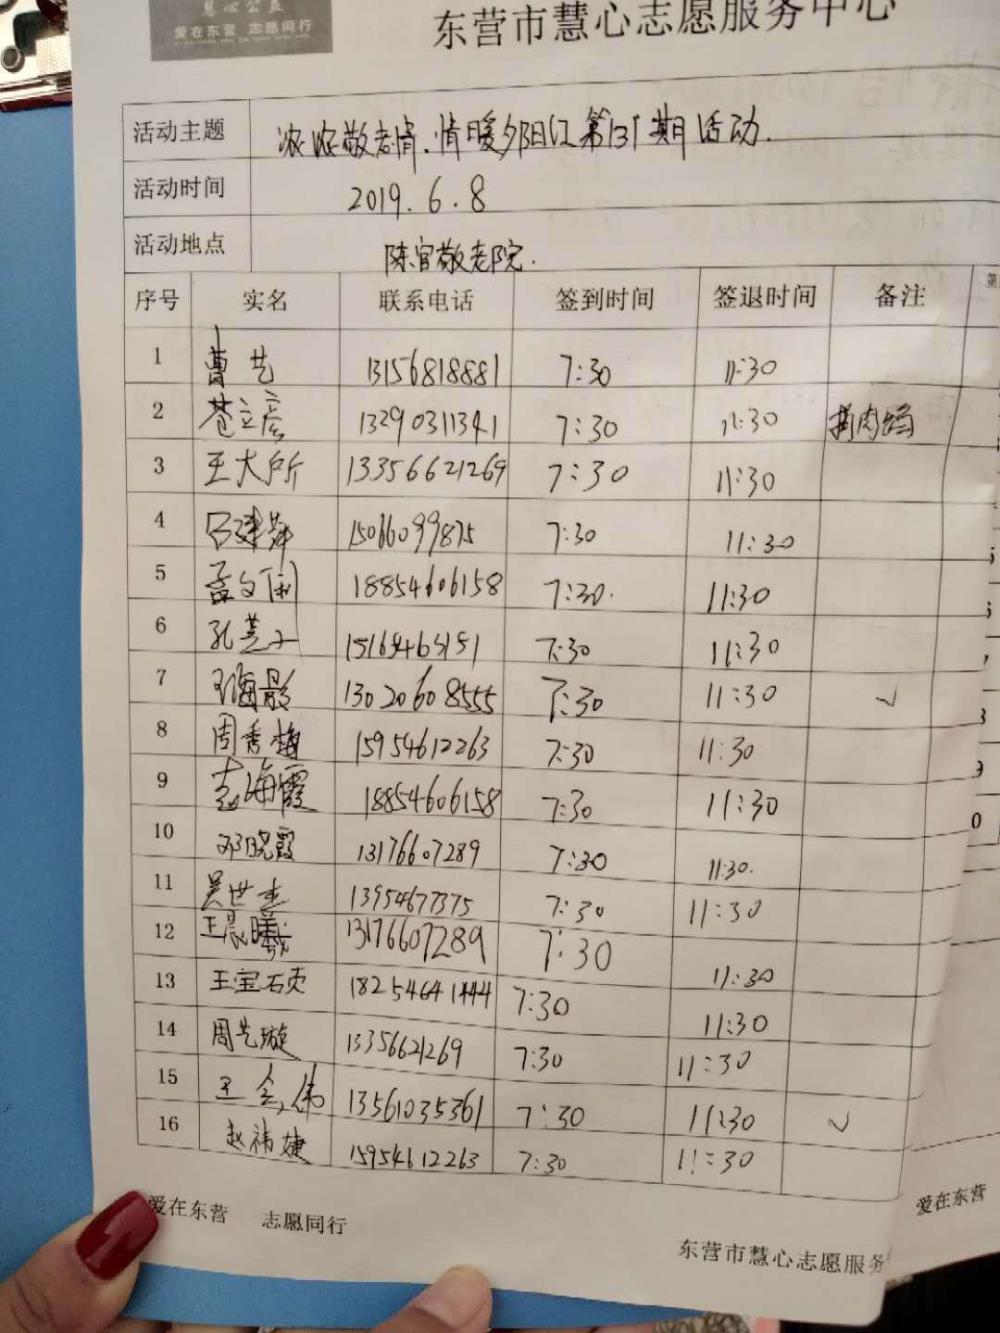 慧心公益
爱在东营 志愿同行
东营市慧心志愿服务中心
活动主题 浓浓敬老情.情暖夕阳红第131期活动.
活动时间 2019.6.8
活动地点 陈官敬老院.
序号 实名 联系电话 签到时间 签退时间 备注
1 曹艺 13156818881 7:30 11:30
2 苍立彦 13290311341 7:30 11:30
3 王大所 13356621269 7:30 11:30
4 吕建萍 15066099875 7:30 11:30
5 孟文俐 18854606158 7:30. 11:30
6 孔芝子 15169463151 7:30 11:30
7 13020608555 7:30 11:30 ✓
8 周香梅 15954612263 7:30 11:30
9 海霞 18854606158 7:30 11:30
10 邓晓霞 13176607289 7:30 11:30.
11 吴世杰 13954677375 7:30 11:30
12 王晨曦 13176607289 7:30 11:30
13 王宝石 18254641444 7:30 11:30
14 周艺璇 13356621269 7:30 11:30
15 王会伟 13561035361 7:30 11:30 ✓
16 赵祎婕 15954612263 7:30 11:30
爱在东营 志愿同行
东营市慧心志愿服务
爱在东营